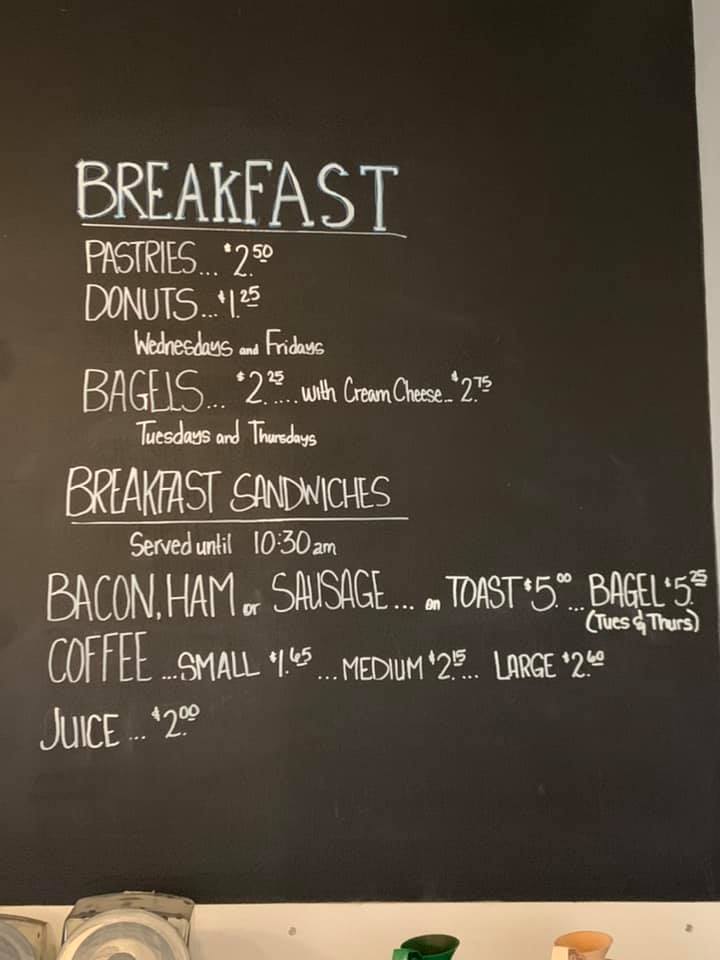 BREAKFAST
PASTRIES... $2.50
DONUTS... $1.25
Wednesdays and Fridays
BAGELS... $2.25.... with Cream Cheese... $2.75
Tuesdays and Thursdays
BREAKFAST SANDWICHES
Served until 10:30 am
BACON, HAM or SAUSAGE... on TOAST $5.00... BAGEL $5.25
(Tues & Thurs)
COFFEE ...SMALL $1.65 ...MEDIUM $2.15... LARGE $2.60
JUICE ... $2.00